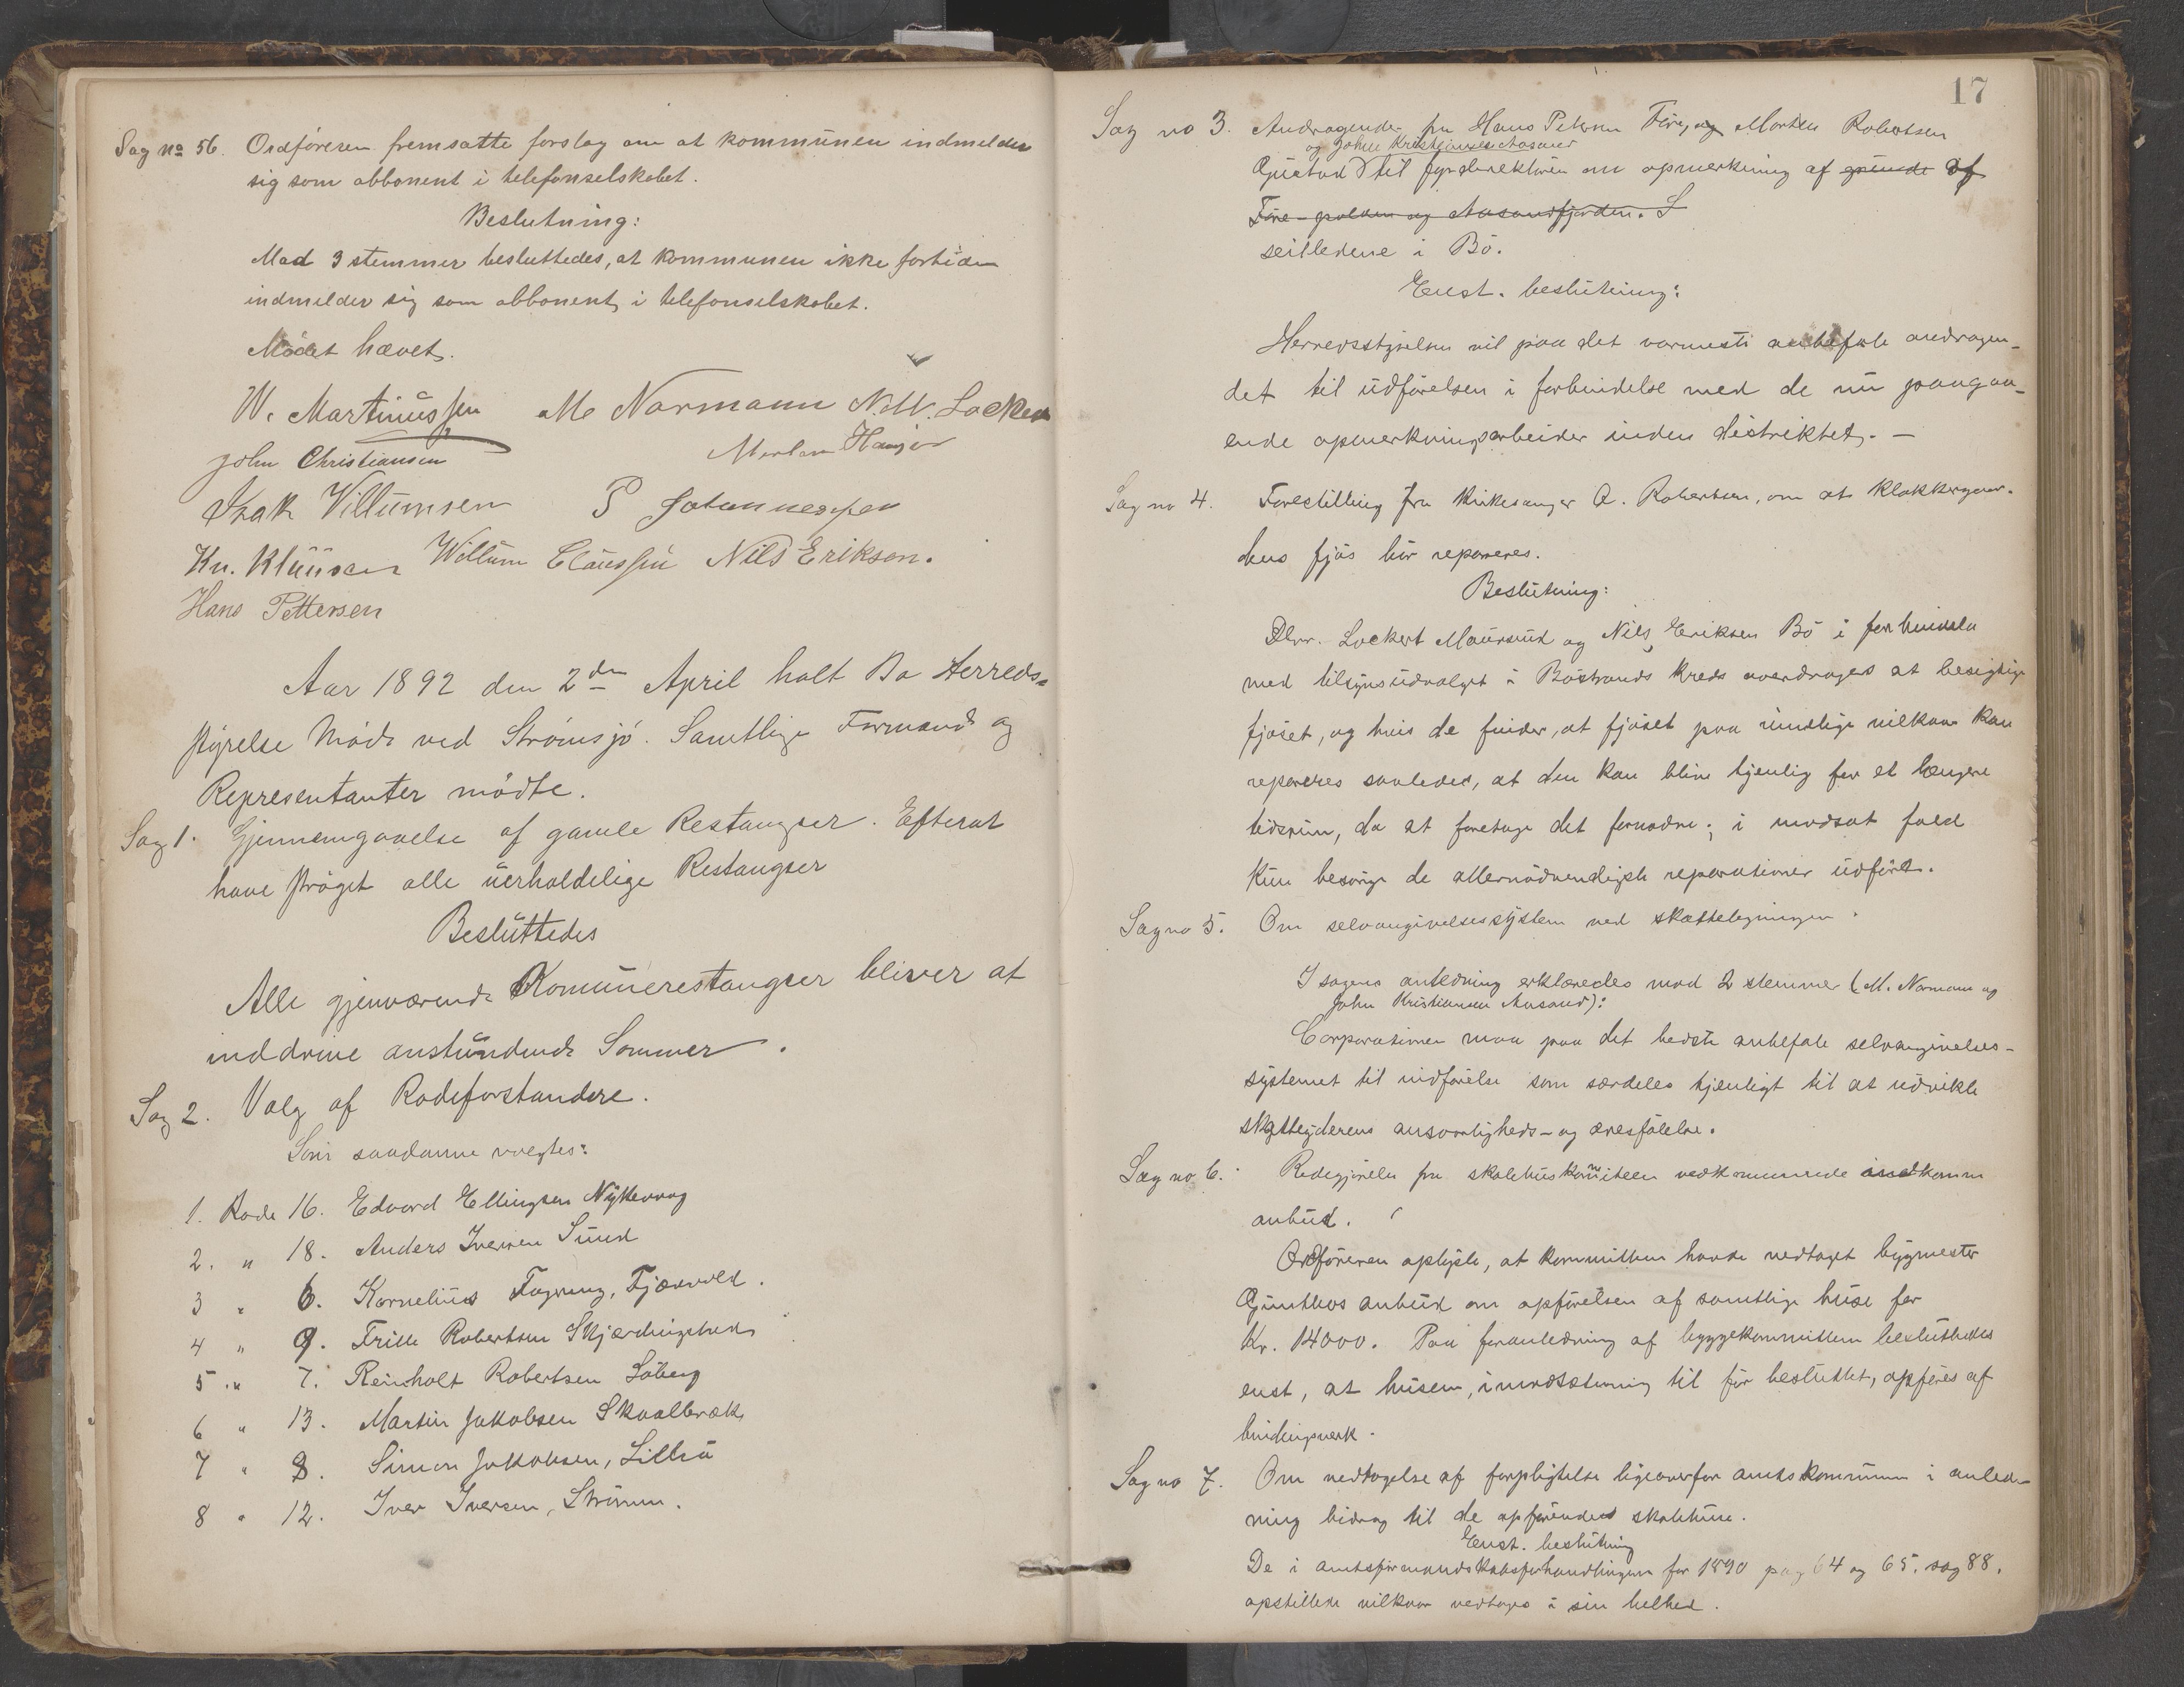 Sag no 56. Ordföreren fremsatte forslag om at kommunen indmelder
sig som abbonent i telefonselskabet.
Beslutning:
Mod 3 stemmer besluttedes, at kommunen ikke fortiden
indmelder sig som abbonent i telefonselskabet.
Mødet hævet.
W. Martinussen M. Normann N. W. Lockert
John Christiansen Morten Hansen
Isak Villumsen P Johannessen
Kn. Knudsen Willum Claussen Nils Eriksen.
Hans Pettersen
Aar 1892 den 2den April holt Bø Herreds-
styrelse Møde ved Strømsjö. Samtlige Formænd og
Representanter mödte.
Sag 1. Gjennemgaaelse af gamle Restangser. Efterat
have strøget alle uerholdelige Restangser
Besluttedes
Alle gjenværende Komunerestangser bliver at
inddrive anstundende Sommer.
Sag 2. Valg af Rodeforstandere.
Som saadanne valgtes:
1. Rode 16. Edvard Ellingsen Nykvaag
2. " 18. Anders Iversen Sund
3 " 6. Kornelius Fagerng, Fjærvold.
4 " 9. Robertsen Skjærdingstad
5 " 7. Reinholt Robertsen Söberg
6 " 13. Martin Jakobsen Skaalbræk
7 " 8. Simon Jakobsen, Lillså
8 " 12. Iver Iversen, Strömm.
17
Sag no 3. Andragende fra Hans Petersen Føre, og Morten Robertsen
og Johan Kristiansen Aasand
til fyrdirektören om opmerkning af grunde af
Føre-polden og Aasandfjorden.
seilledene i Bö.
Enst. beslutning:
Herredsstyrelsen vil paa det varmeste anbefale andragen-
det til udförelsen i forbindelse med de nu paagaa-
ende opmerkningsarbeider inden distriktet. —
Sag no 4. Forestilling fra kirkesanger O. Robertsen, om at klokkergaar-
dens fjös bör repareres.
Beslutning:
Lockert Maursund og Nils Eriksen Bö i forbindelse
med tilsynsudvalget i Böstrands kreds overdrages at besigtige
fjöset, og hvis de finder, at fjöset paa rimelige vilkaar kan
repareres saaledes, at den kan blive tjenlig for et længere
tidsrum, da at foretage det fornødne; i modsat fald
kun besørge de allernödvendigste reparationer udfört.
Sag no 5. Om selvangivelsessystem ved skatteligningen.
I sagens anledning erklæredes mod 2 stemmer (M. Normann og
John Kristiansen Aasand):
Corporationen maa paa det bedste anbefale selvangivelses-
systemet til indførelse som særdeles tjenligt til at udvikle
skatteyderens ansvarligheds- og æresfölelse.
Sag no 6. Redegjörelse fra skolehuskommiteen vedkommende indkomne
anbud.
Ordføreren oplyste, at kommitteen havde vedtaget bygmester
anbud om opförelsen af samtlige huse for
Kr. 14000. Paa foranledning af byggekommitteen besluttedes
enst, at husene, i modsætning til för besluttet, opföres af
bindingsverk.
Sag no 7. Om vedtagelse af forpligtelse ligeoverfor amtskommunen i anled-
ning bidrag til de opförendes skolehuse.
Enst. beslutning
De i amtsformandskabsforhandlingerne for 1890 pag 64 og 65, sag 88,
opstillede vilkaar vedtages i sin helhed.